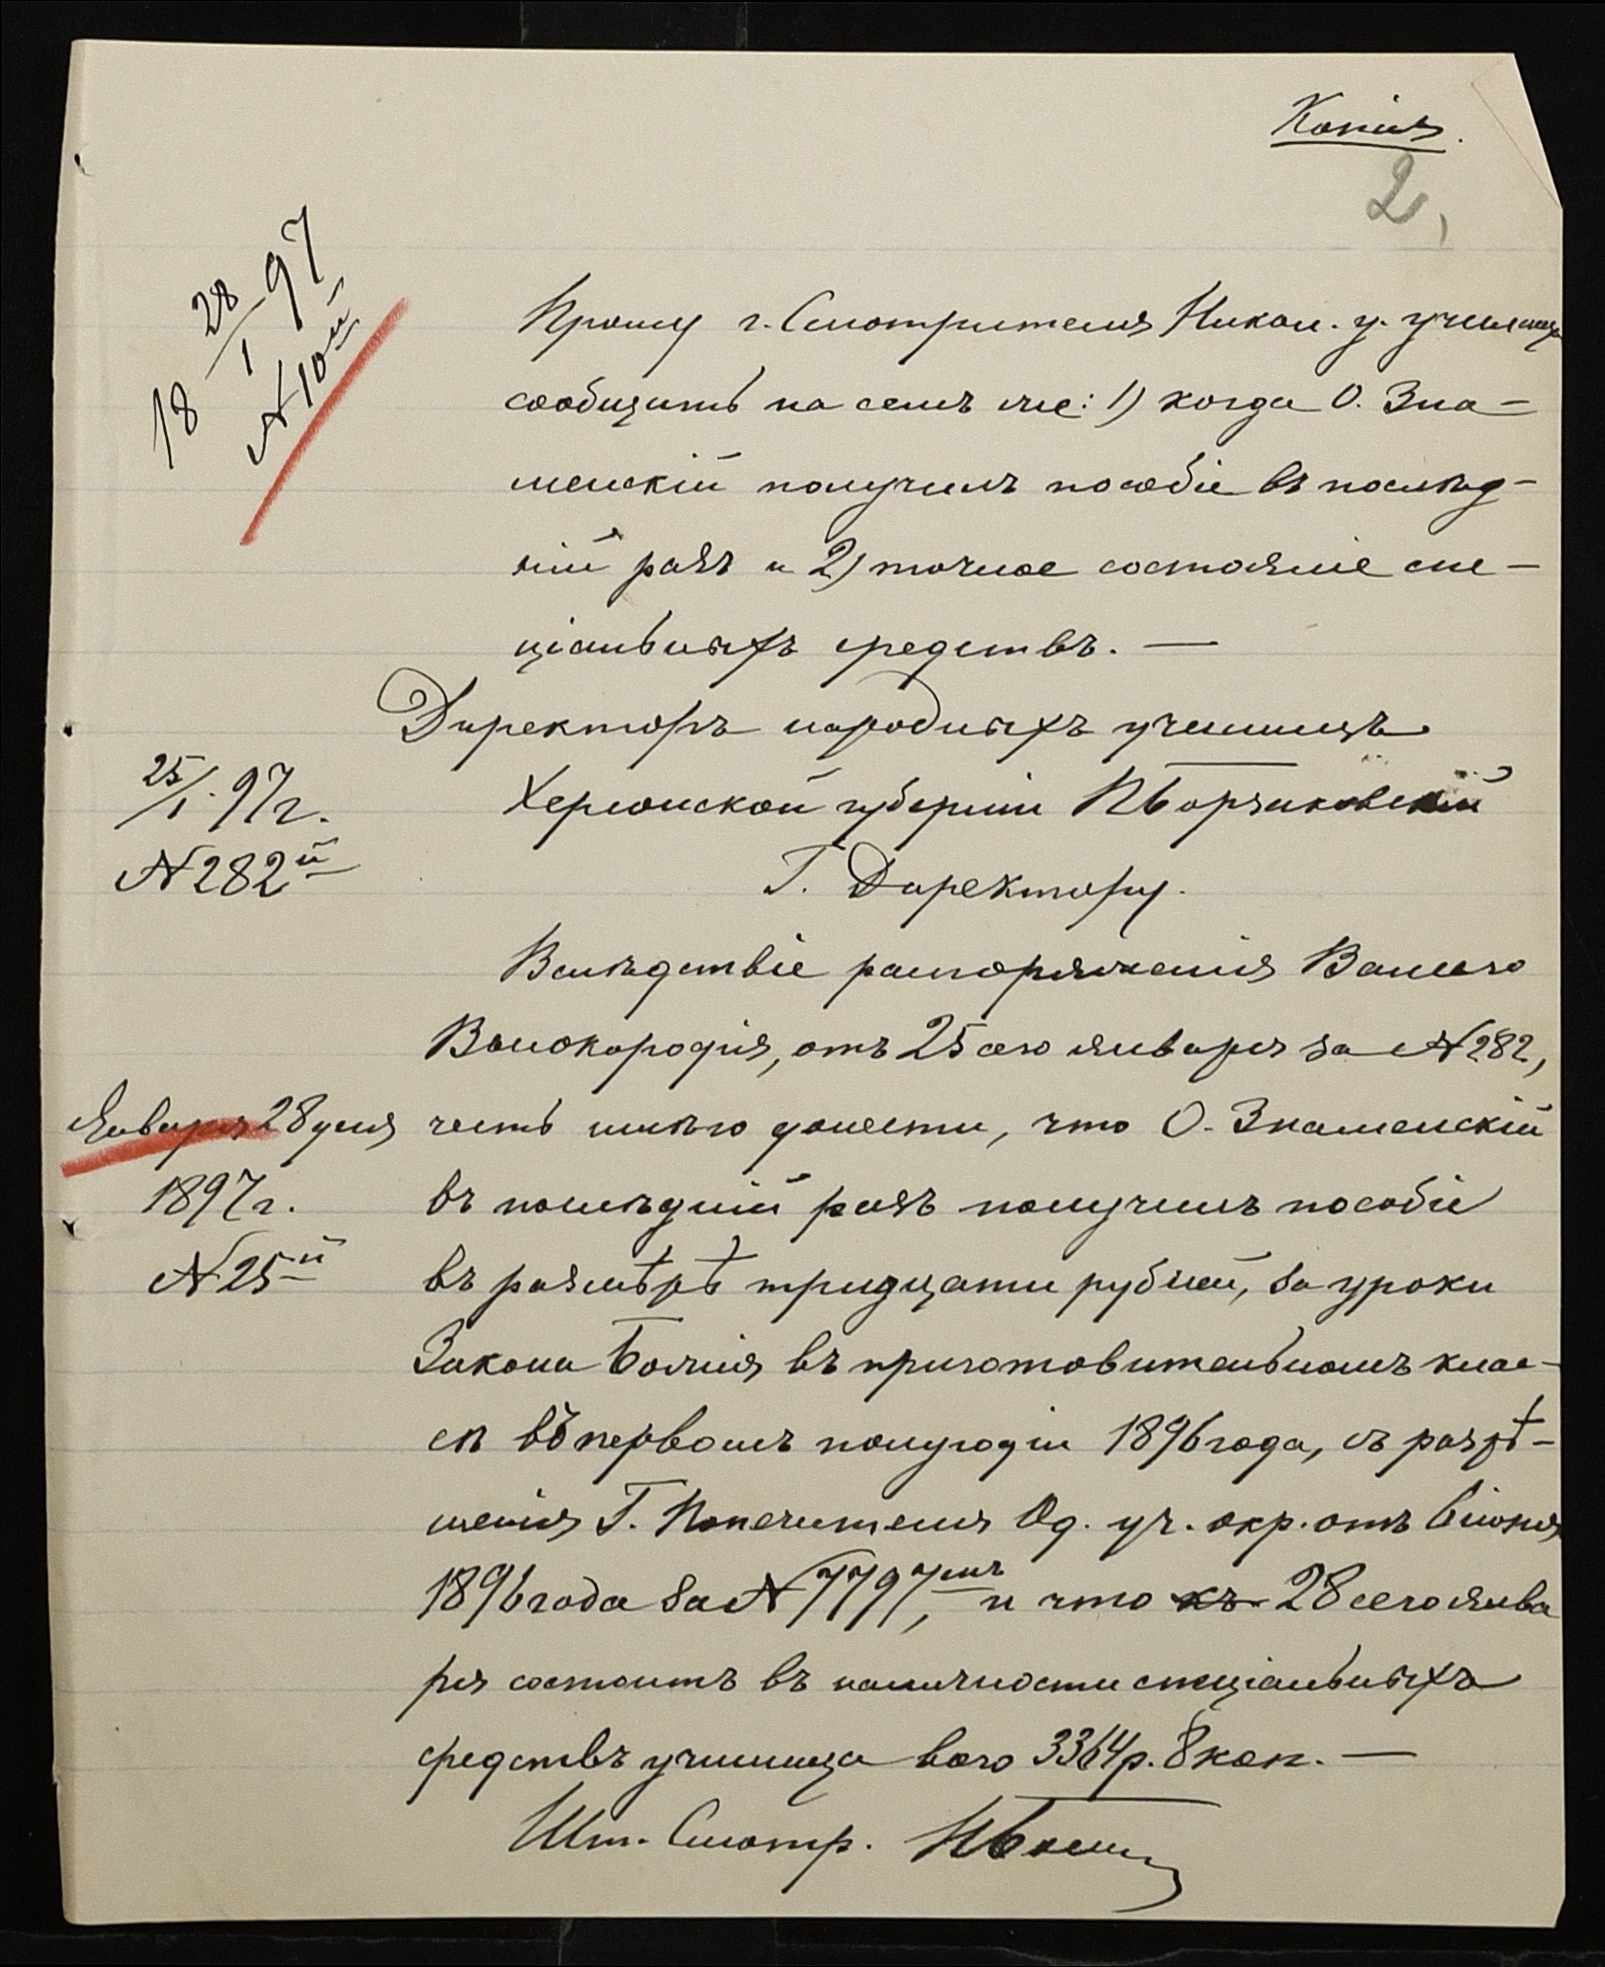 Копія.
2,
18 28/I 97
№ 10й
Прошу г. Смотрителя Никол. у. училища
сообщить на семъ же: 1) когда О. Зна-
менскій получилъ пособіе въ послѣд-
ній разъ и 2) точное состояніе спе-
ціальныхъ средствъ. —
Директоръ народныхъ училищъ
25/I. 97 г.
Херсонской губерніи
№ 282й
Г. Директору.
Вслѣдствіе распоряженія Вашего
Высокородія, отъ 25 сего января за № 282,
Января 28 дня
1897 г.
№ 25й
честь имѣю донести, что О. Знаменскій
въ послѣдній разъ получилъ пособіе
въ размѣрѣ тридцати рублей, за уроки
Закона Божія въ приготовительномъ клас-
сѣ въ первомъ полугодіи 1896 года, съ разрѣ-
шенія Г. Попечителя Од. уч. окр. отъ 6 іюня
1896 года за № 7797мъ, и что къ 28 сего янва
ря состоитъ въ наличности спеціальныхъ
средствъ училища всего 3364 р. 8 коп. —
Шт. Смотр.